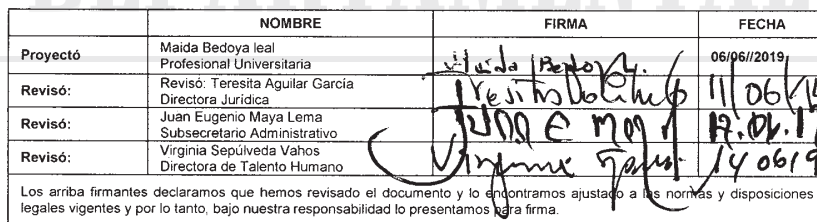 NOMBRE FIRMA FECHA
Proyectó Maida Bedoya leal
Profesional Universitaria Maida Bedoya 06/06//2019
Revisó: Revisó: Teresita Aguilar García
Directora Jurídica 11/06/19
Revisó: Juan Eugenio Maya Lema
Subsecretario Administrativo Juan E Maya
Revisó: Virginia Sepúlveda Vahos
Directora de Talento Humano 14 0619
Los arriba firmantes declaramos que hemos revisado el documento y lo encontramos ajustado a las normas y disposiciones
legales vigentes y por lo tanto, bajo nuestra responsabilidad lo presentamos para firma.